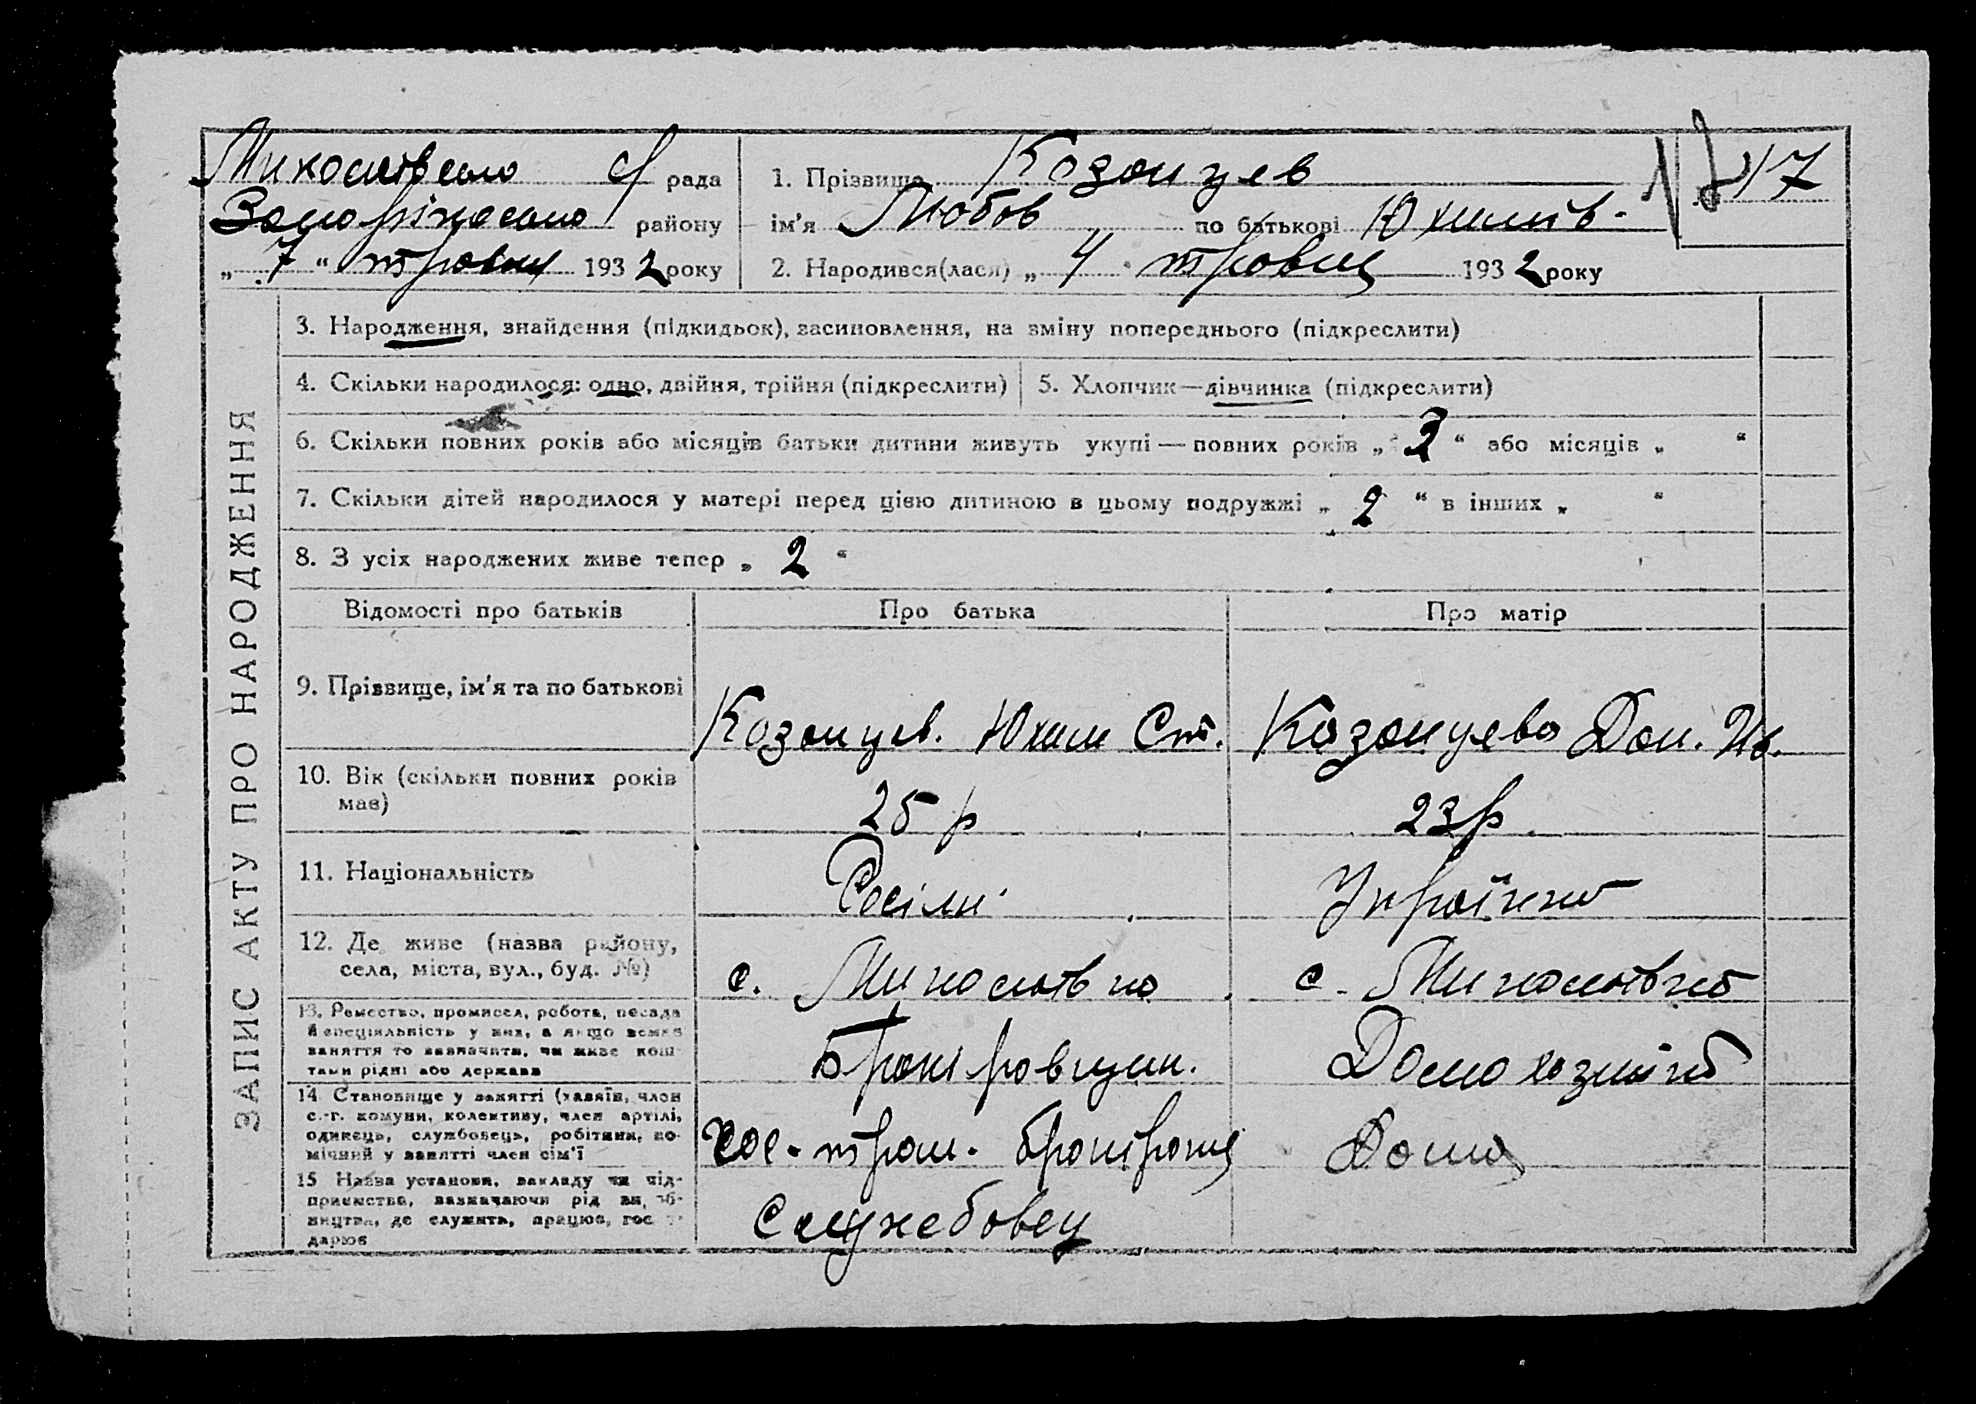 с/ рада
району
„ 7 “ травня 1932 року
1. Прізвище Козанцев
ім'я Любов по батькові Юхимів.
2. Народився(лася) „ 4 травня 1932 року
17
ЗАПИС АКТУ ПРО НАРОДЖЕННЯ
3. Народження, знайдення (підкидьок), засиновлення, на зміну попереднього (підкреслити)
4. Скільки народилося: одно, двійня, трійня (підкреслити)
5. Хлопчик—дівчинка (підкреслити)
6. Скільки повних років або місяців батьки дитини живуть укупі — повних років „ 3 “ або місяців „ “
7. Скільки дітей народилося у матері перед цією дитиною в цьому подружжі „ 2 “ в інших „ “
8. З усіх народжених живе тепер „ 2 “
Відомості про батьків
Про батька
Про матір
9. Прізвище, ім'я та по батькові
Козанцев. Юхим Ст.
Козанцева Дом. Ів.
10. Вік (скільки повних років
має)
25 р
23 р
11. Національність
Росіян
Українка
12. Де живе (назва району,
села, міста, вул., буд. №)
с.
с.
13. Ремество, промисел, робота, посада
й спеціяльність у них, а якщо немає
заняття то зазначити, чи живе кош-
тами рідні або держави
Броніровщик.
Домохозяйка
14. Становище у занятті (хазяїн, член
с.-г. комуни, колективу, член артілі,
одинець, службовець, робітник, по-
мічний у занятті член сім'ї
Дома
15. Назва установи, закладу чи під-
приємства, зазначаючи рід
де служить, працює, гос
дарює
Службовец